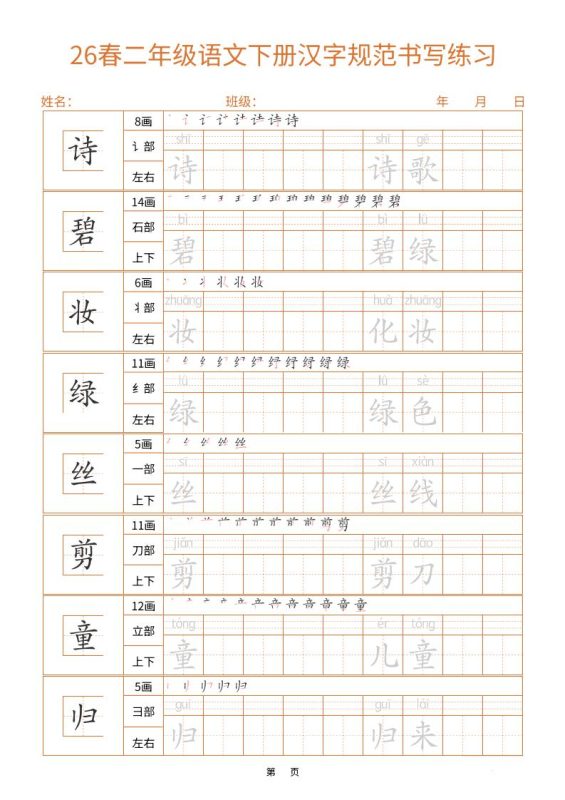 26春二年级语文下册汉字规范书写练习
姓名： 班级： 年 月 日
诗 8画
讠部 shī shī gē
左右 诗 诗 歌
碧 14画
石部 bì bì lǜ
上下 碧 碧 绿
妆 6画
丬部 zhuāng huà zhuāng
左右 妆 化 妆
绿 11画
纟部 lǜ lǜ sè
左右 绿 绿 色
丝 5画
一部 sī sī xiàn
上下 丝 丝 线
剪 11画
刀部 jiǎn jiǎn dāo
上下 剪 剪 刀
童 12画
立部 tóng ér tóng
上下 童 儿 童
归 5画
彐部 guī guī lái
左右 归 归 来
第 页